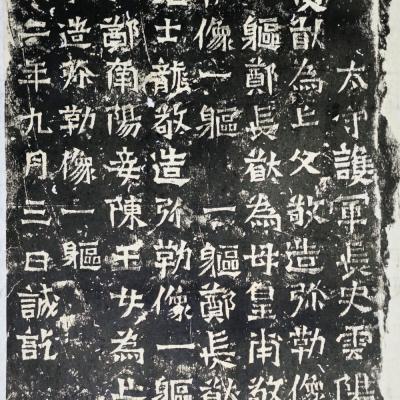 太守護軍長史雲陽
猷為亡父敬造弥勒像
軀鄭長猷為母皇甫敬
像一軀 一軀鄭長猷
士龍敬造弥勒像一軀
鄭南陽妾陳玉女為亡
造弥勒像一軀
二年九月三日誡訖